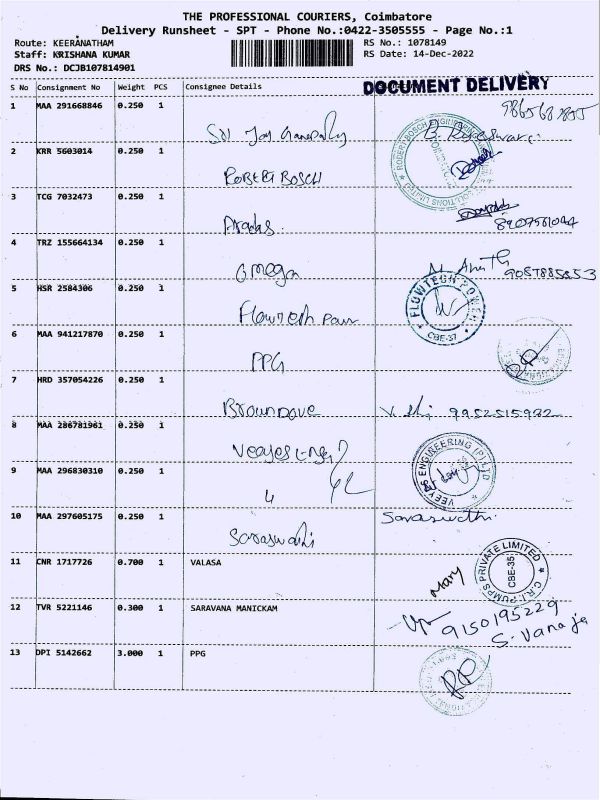 THE PROFESSIONAL COURIERS, Coimbatore
Delivery Runsheet - SPT - Phone No.:0422-3505555 - Page No.:1
Route: KEERANATHAM
Staff: KRISHANA KUMAR
DRS No.: DCJB107814901
RS No.: 1078149
RS Date: 14-Dec-2022
S No Consignment No Weight PCS Consignee Details
DOCUMENT DELIVERY
1 MAA 291668846 0.250 1
2 KRR 5603014 0.250 1 Robert Bosch
3 TCG 7032473 0.250 1
4 TRZ 155664134 0.250 1 Omega
5 HSR 2584306 0.250 1
FLOWTECH POWER
CBE-37
6 MAA 941217870 0.250 1 PPG
7 HRD 357054226 0.250 1 9952515992
8 MAA 286781961 0.250 1
ENGINEERING (P) LTD
9 MAA 296830310 0.250 1
10 MAA 297605175 0.250 1 Saraswathi Saraswathi
11 CNR 1717726 0.700 1 VALASA Mary
C.R.I. PUMPS PRIVATE LIMITED
CBE-35
12 TVR 5221146 0.300 1 SARAVANA MANICKAM 9150195229
S. Vanaja
13 DPI 5142662 3.000 1 PPG